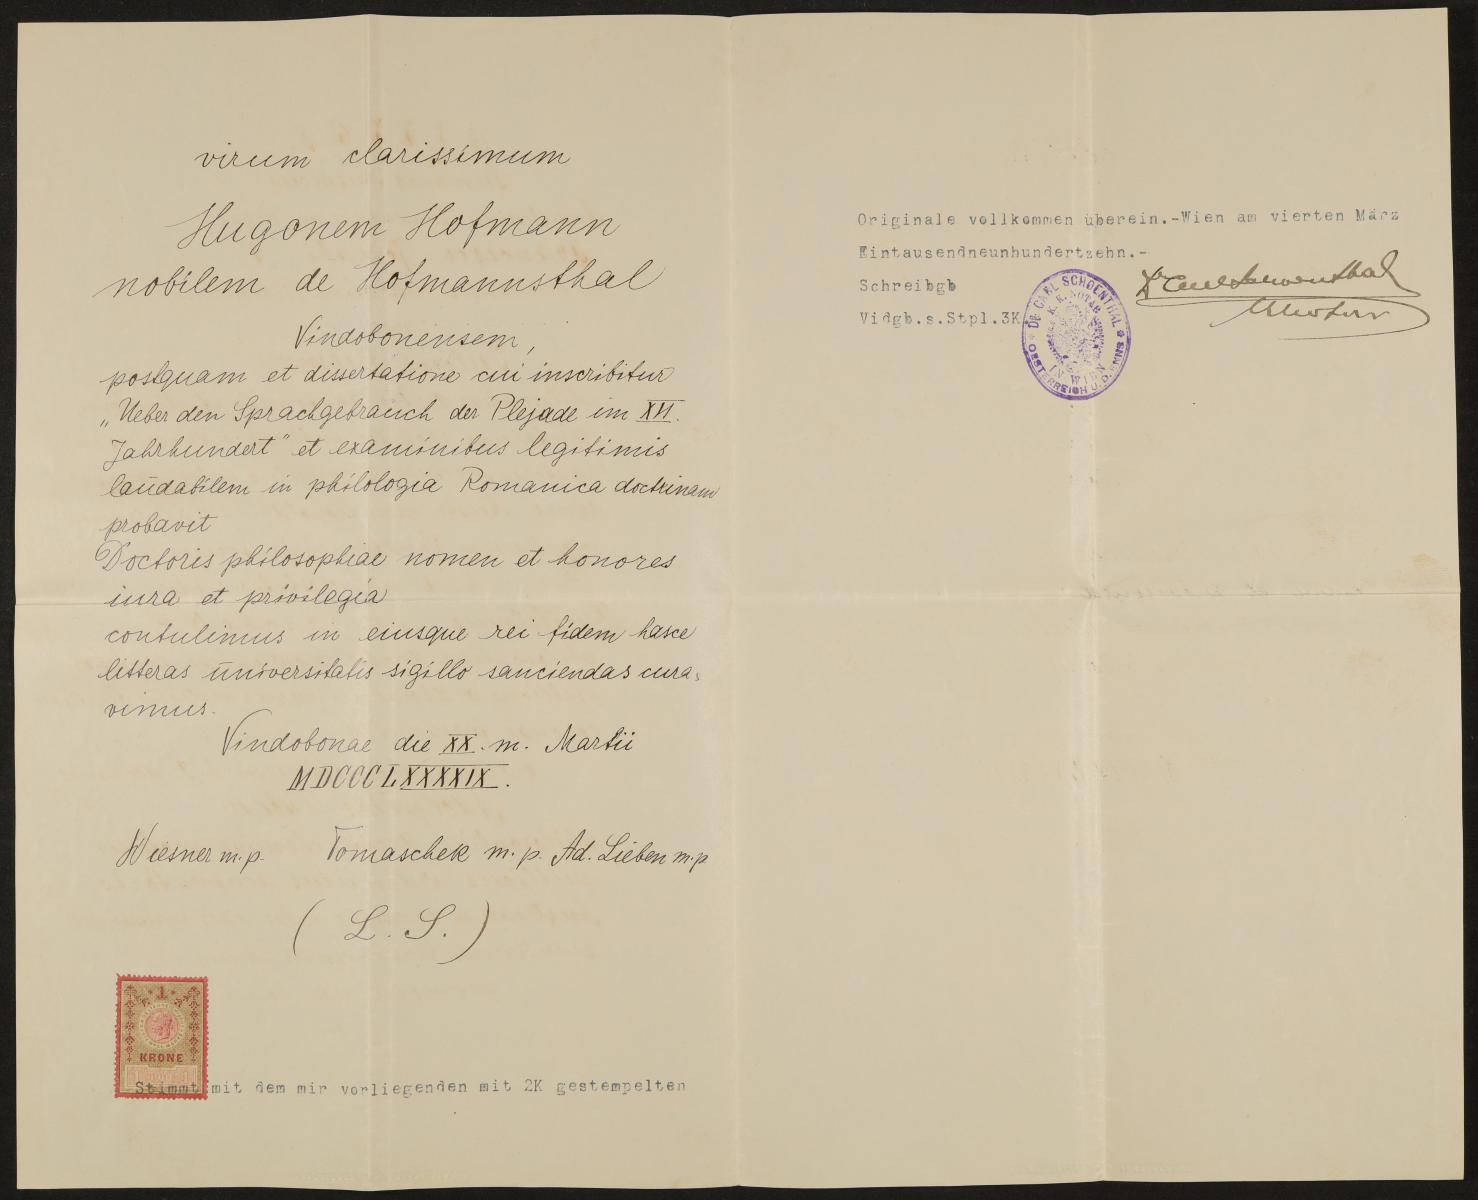 virum clarissimum
Hugonem Hofmann
nobilem de Hofmannsthal
Vindobonensem,
postquam et dissertatione cui inscribitur
„Ueber den Sprachgebrauch der Plejade im XVI.
Jahrhundert" et examinibus legitimis
laudabilem in philologia Romanica doctrinam
probavit
Doctoris philosophiae nomen et honores
iura et privilegia
contulimus in eiusque rei fidem hasce
litteras universitatis sigillo sanciendas cura=
vimus.
Vindobonae die XX. m. Martii
MDCCCLXXXXIX.
Wiesner m.p. Tomaschek m.p. Ad. Lieben m.p
(L. S.)
1
KRONE
Stimmt mit dem mir vorliegenden mit 2K gestempelten
Originale vollkommen überein.-Wien am vierten März
Eintausendneunhundertzehn.-
Schreibgb
Vidgb.s.Stpl.3K
Dr. CARL SCHOENTHAL
K. K. NOTAR
IN WIEN
OESTERREICH U. D. ENNS
Dr Carl Schoenthal
k.k. Notar